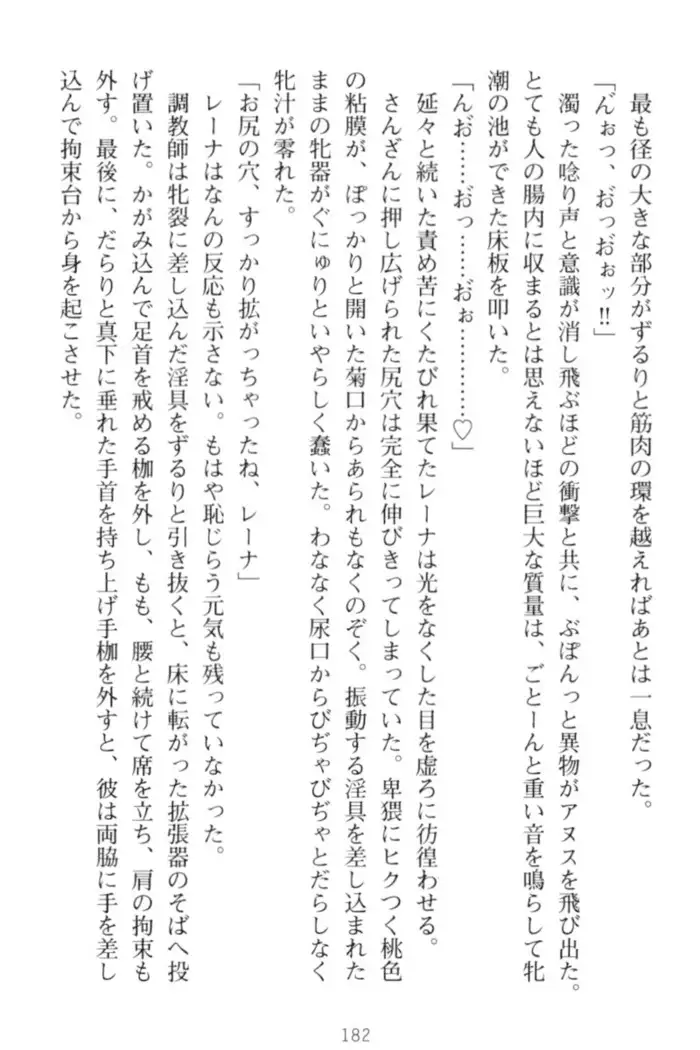 最も径の大きな部分がずるりと筋肉の環を越えればあとは一息だった。
「ん゛ぉっ、お゛っお゛ぉッ!!」
濁った唸り声と意識が消し飛ぶほどの衝撃と共に、ぶぽんっと異物がアヌスを飛び出た。
とても人の腸内に収まるとは思えないほど巨大な質量は、ごとーんと重い音を鳴らして牝
潮の池ができた床板を叩いた。
「んお゛……お゛っ……お゛ぉ…………♡」
延々と続いた責め苦にくたびれ果てたレーナは光をなくした目を虚ろに彷徨わせる。
さんざんに押し広げられた尻穴は完全に伸びきってしまっていた。卑猥にヒクつく桃色
の粘膜が、ぽっかりと開いた菊口からあられもなくのぞく。振動する淫具を差し込まれた
ままの牝器がぐにゅりといやらしく蠢いた。わななく尿口からびぢゃびぢゃとだらしなく
牝汁が零れた。
「お尻の穴、すっかり拡がっちゃったね、レーナ」
レーナはなんの反応も示さない。もはや恥じらう元気も残っていなかった。
調教師は牝裂に差し込んだ淫具をずるりと引き抜くと、床に転がった拡張器のそばへ投
げ置いた。かがみ込んで足首を戒める枷を外し、もも、腰と続けて席を立ち、肩の拘束も
外す。最後に、だらりと真下に垂れた手首を持ち上げ手枷を外すと、彼は両脇に手を差し
込んで拘束台から身を起こさせた。
182